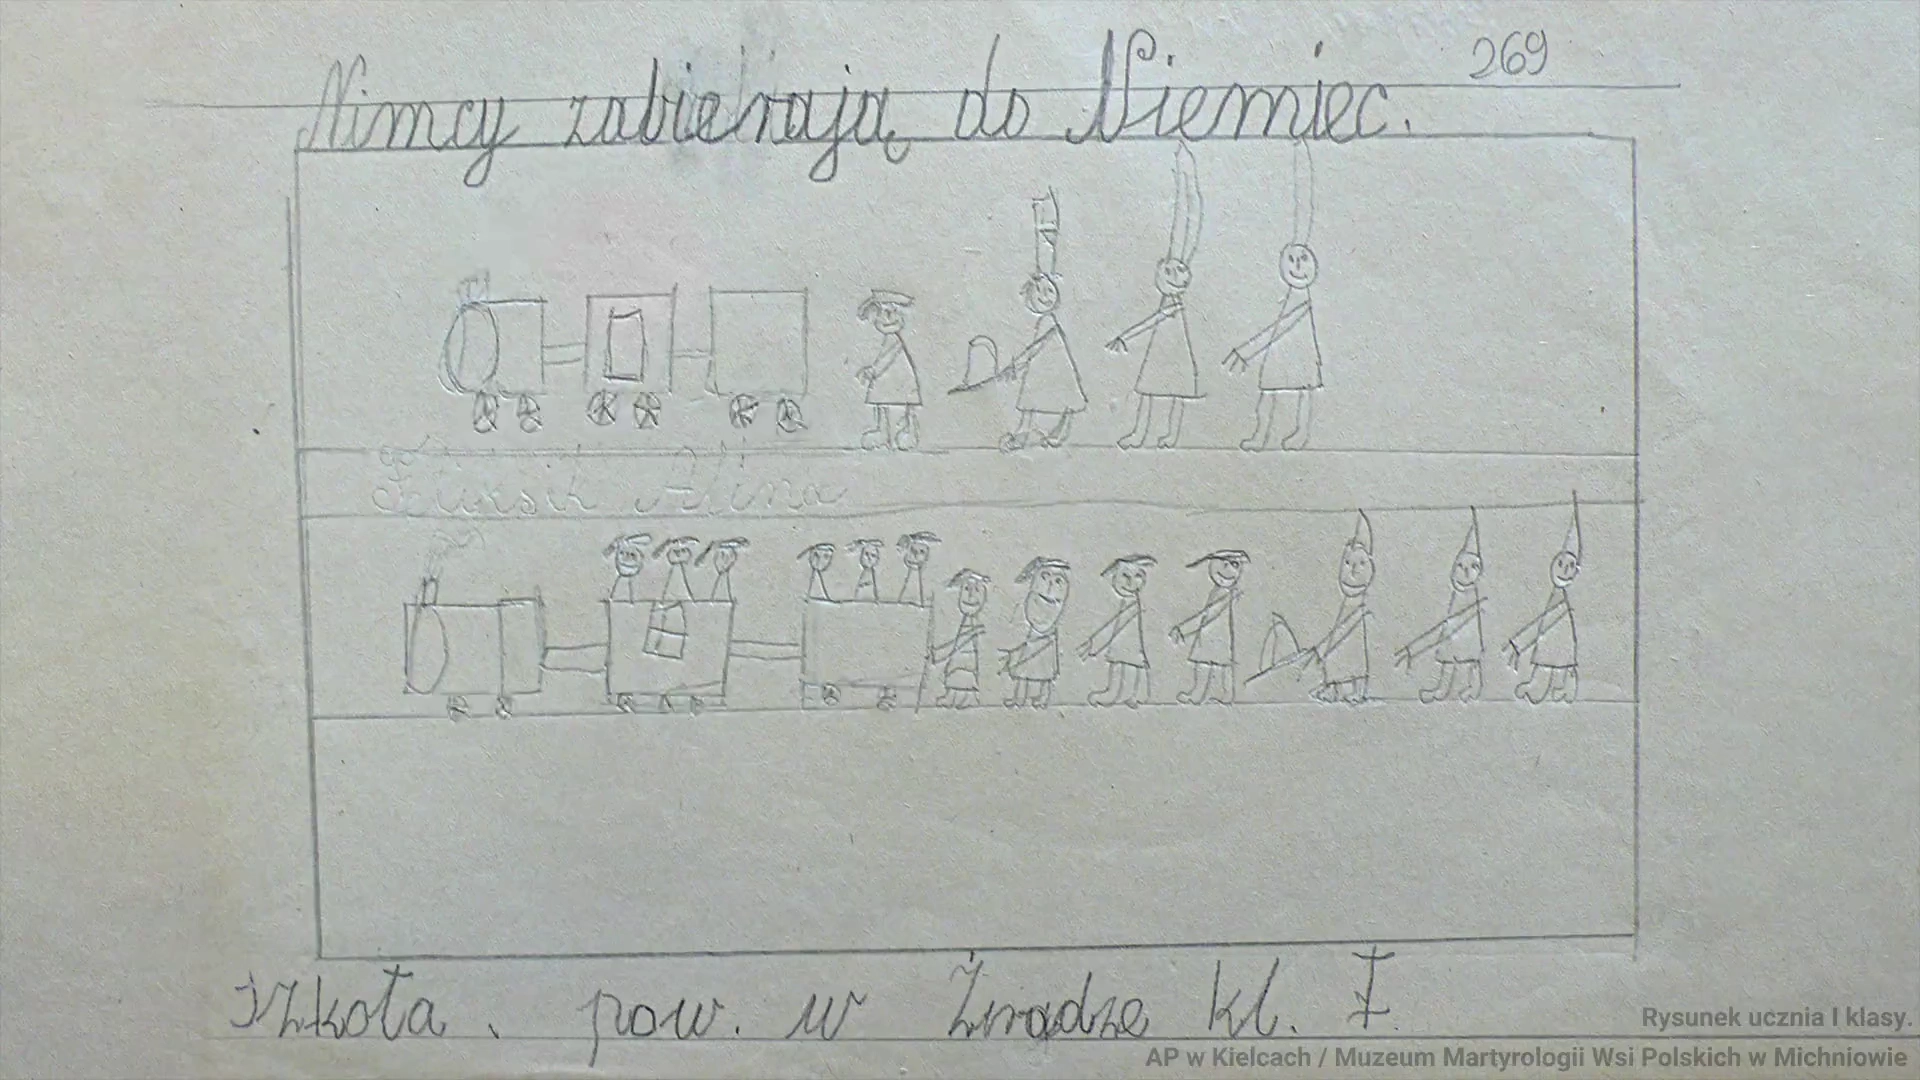 269
Nimcy zabierają do Niemiec.
Alina
Szkoła. pow. w kl. I.
Rysunek ucznia I klasy.
AP w Kielcach / Muzeum Martyrologii Wsi Polskich w Michniowie